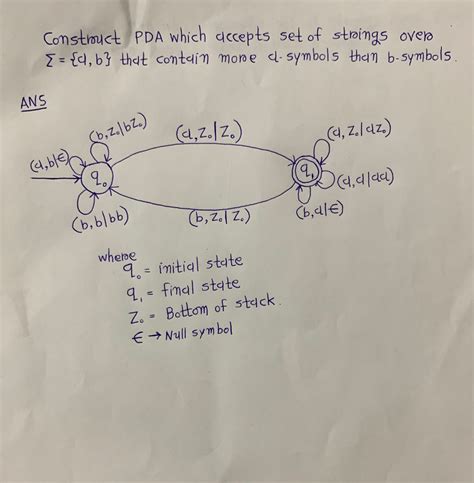 Construct PDA which accepts set of strings over
Σ = {a, b} that contain more a-symbols than b-symbols.
ANS
(b, Z₀|bZ₀)
(a, Z₀|Z₀)
(a, Z₀|aZ₀)
(a, b|ϵ)
q₀
q₁
(a, a|aa)
(b, b|bb)
(b, Z₀|Z₀)
(b, a|ϵ)
where
q₀ = initial state
q₁ = final state
Z₀ = Bottom of stack.
ϵ → Null symbol